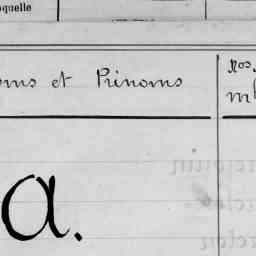 oquelle
oms et Prénoms
Nos.
a.